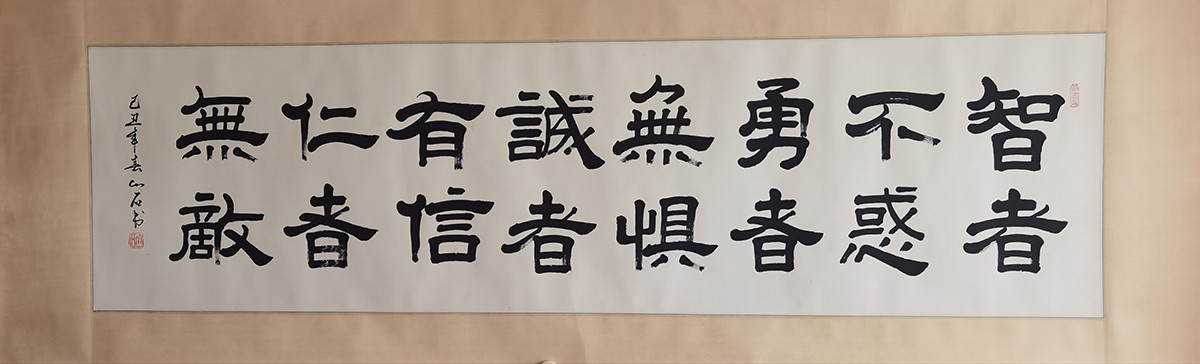 智者
不惑
勇者
無惧
誠者
有信
仁者
無敵
己丑年春山石书